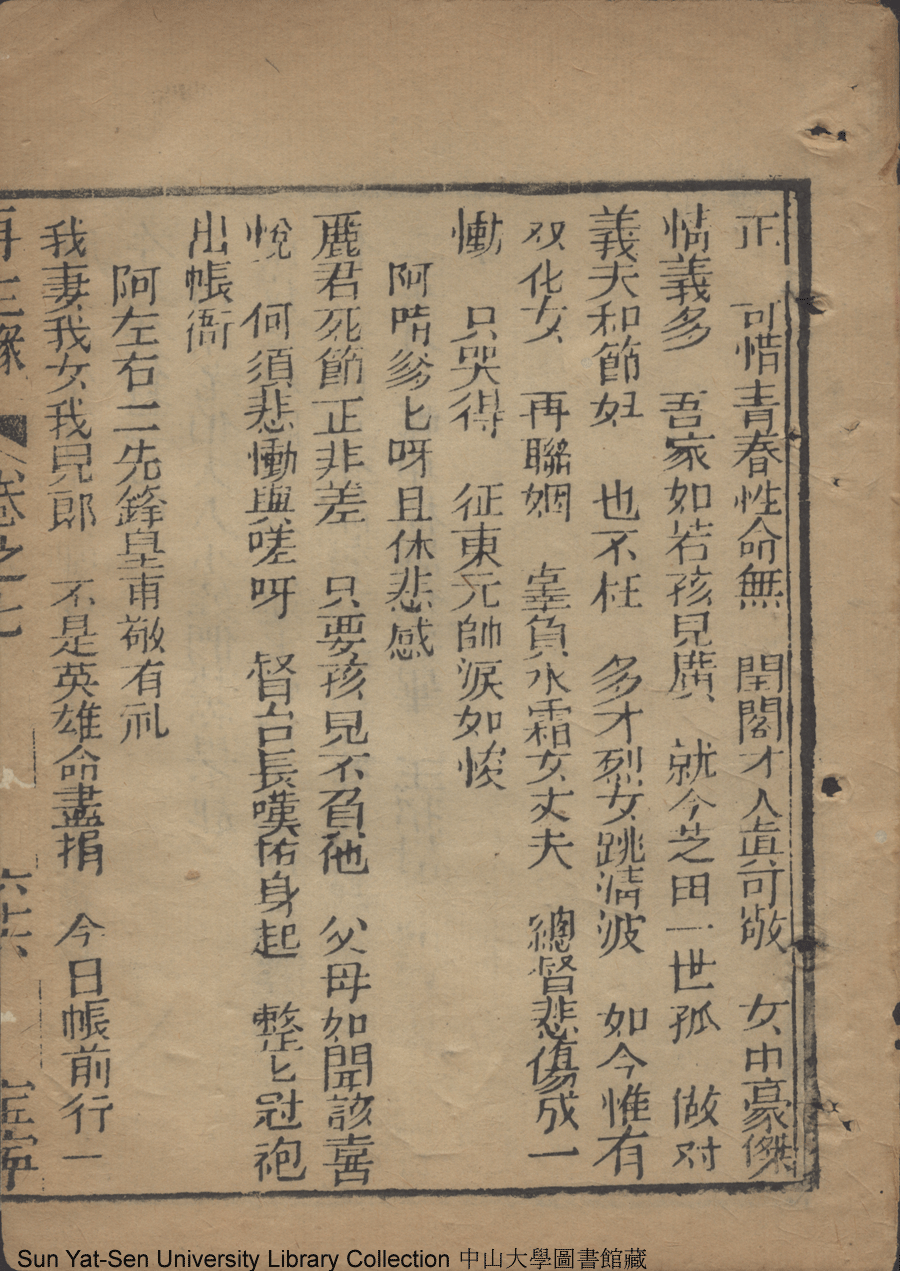 正 可惜青春性命無 閨閣才人真可敬 女中豪傑
情義多 吾家如若孩兒廣 就今芝田一世孤 做对
義夫和節妇 也不枉 多才烈女跳清波 如今惟有
双化女 再聯姻 辜負氷霜女丈夫 總督悲傷成一
慟 只哭得 征東元帥淚如梭
阿唷爹匕呀且休悲感
鹿君死節正非差 只要孩兒不負他 父母如聞該喜
悅 何須悲慟與嗟呀 督台長嘆抬身起 整匕冠袍
出帳衙
阿左右二先鋒皇甫敬有礼
我妻我女我兒郎 不是英雄命盡捐 今日帳前行一
再生緣 卷之七 六十六 宝寧
Sun Yat-Sen University Library Collection 中山大學圖書館藏